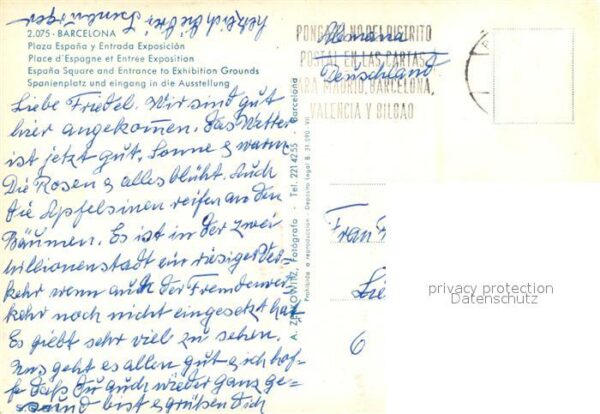 herzlich die drei
2.075 - BARCELONA
Plaza España y Entrada Exposición
Place d'Espagne et Entrée Exposition
España Square and Entrance to Exhibition Grounds
Spanienplatz und eingang in die Ausstellung
Liebe Friedel. Wir sind gut
hier angekommen. Das Wetter
ist jetzt gut, Sonne & warm
Die Rosen & alles blüht. Auch
die Apfelsinen reifen an den
Bäumen. Es ist in der zwei
millionenstadt ein riesiger Ver-
kehr wenn auch der Fremdenver-
kehr noch nicht eingesetzt hat
Es giebt sehr viel zu sehen.
Uns geht es allen gut & ich hof-
fe daß du auch wieder ganz ge-
sund bist & grüßen dich
A. ZERKOWITZ, Fotógrafo Tel. 221 42 55 Barcelona
Prohibida la reproducción - Depósito legal B. 31.090 - VII
PONGA NO DEL DISTRITO
POSTAL EN LAS CARTAS
PARA MADRID, BARCELONA,
VALENCIA Y BILBAO
Alemania
Deutschland
Frau
6
privacy protection
Datenschutz